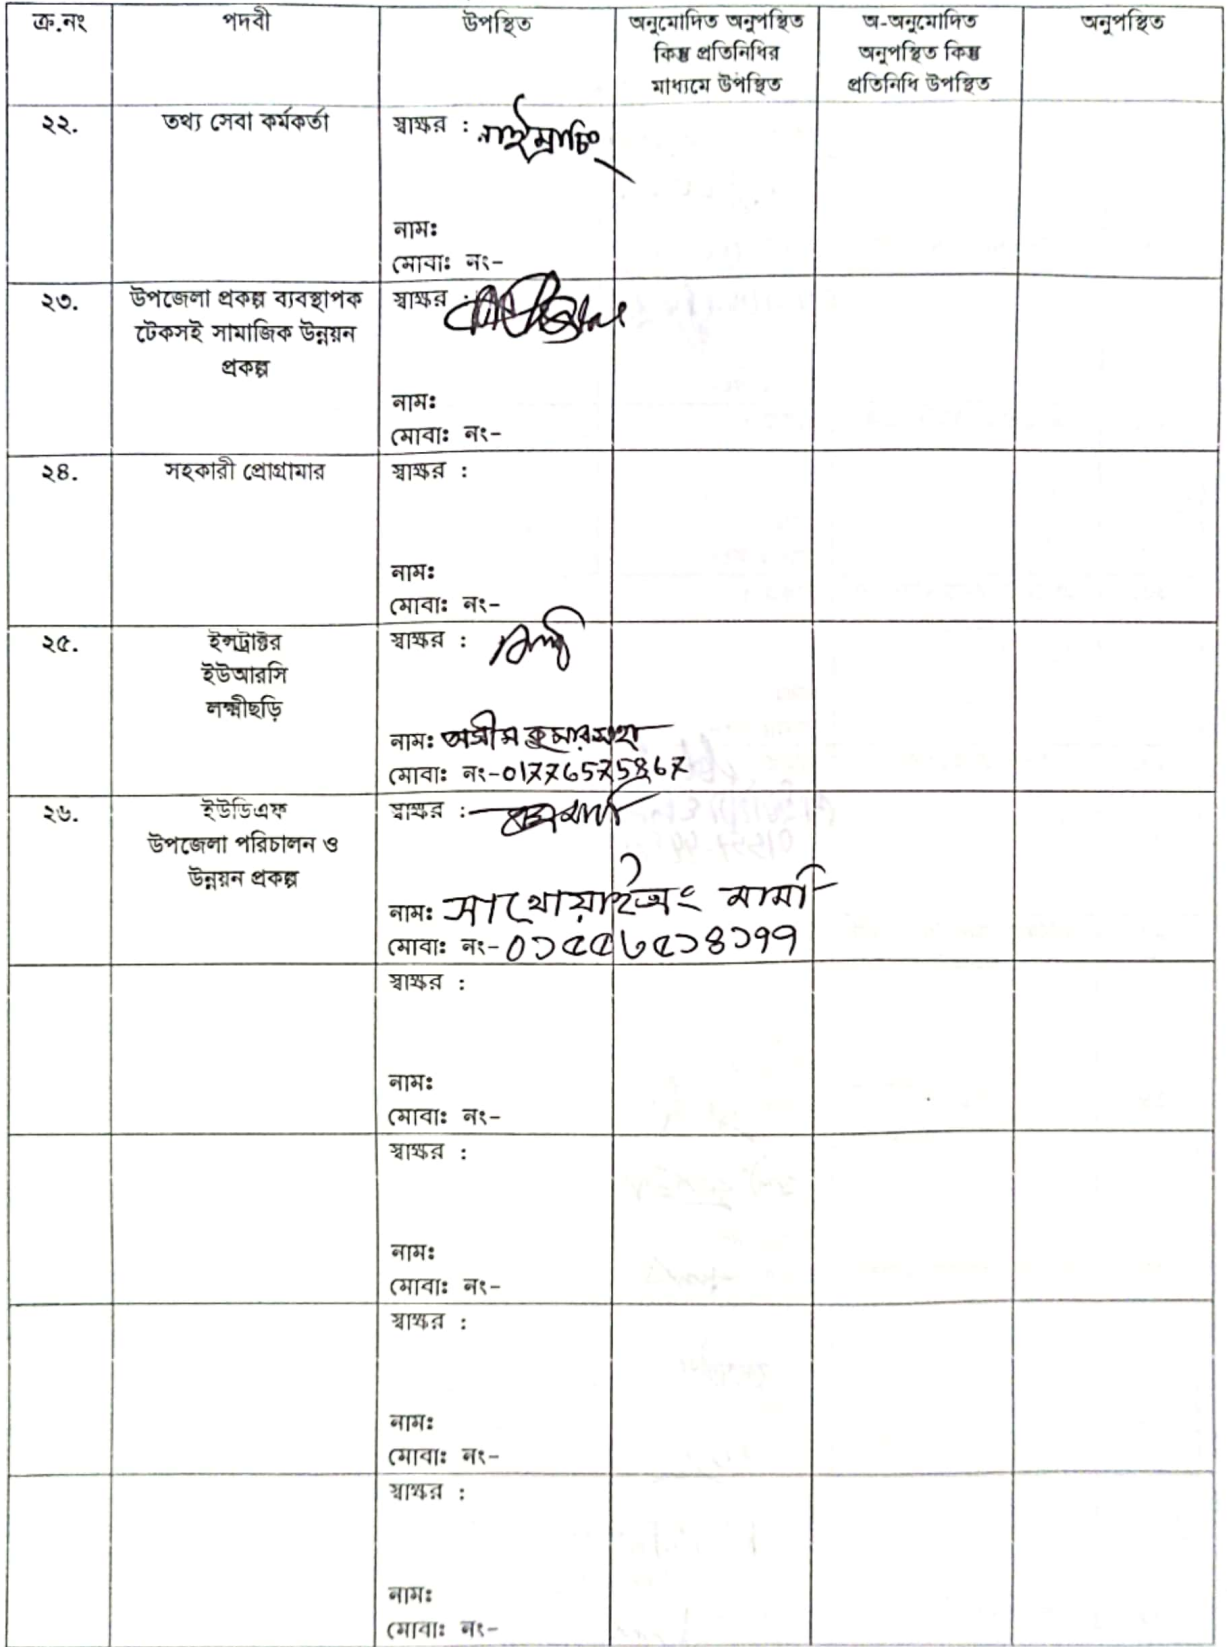 ক্র.নং পদবী উপস্থিত অনুমোদিত অনুপস্থিত কিন্তু প্রতিনিধির মাধ্যমে উপস্থিত অ-অনুমোদিত অনুপস্থিত কিন্তু প্রতিনিধি উপস্থিত অনুপস্থিত
২২. তথ্য সেবা কর্মকর্তা স্বাক্ষর :
নাম:
মোবা: নং-
২৩. উপজেলা প্রকল্প ব্যবস্থাপক স্বাক্ষর :
টেকসই সামাজিক উন্নয়ন
প্রকল্প
নাম:
মোবা: নং-
২৪. সহকারী প্রোগ্রামার স্বাক্ষর :
নাম:
মোবা: নং-
২৫. ইন্সট্রাক্টর স্বাক্ষর :
ইউআরসি
লক্ষ্মীছড়ি
নাম: অসীম কুমার
মোবা: নং-
২৬. ইউডিএফ স্বাক্ষর :
উপজেলা পরিচালন ও
উন্নয়ন প্রকল্প
নাম: সাথোয়াইঅং মারমা
মোবা: নং- ০১৫৫৬৫১৪১৭৭
স্বাক্ষর :
নাম:
মোবা: নং-
স্বাক্ষর :
নাম:
মোবা: নং-
স্বাক্ষর :
নাম:
মোবা: নং-
স্বাক্ষর :
নাম:
মোবা: নং-